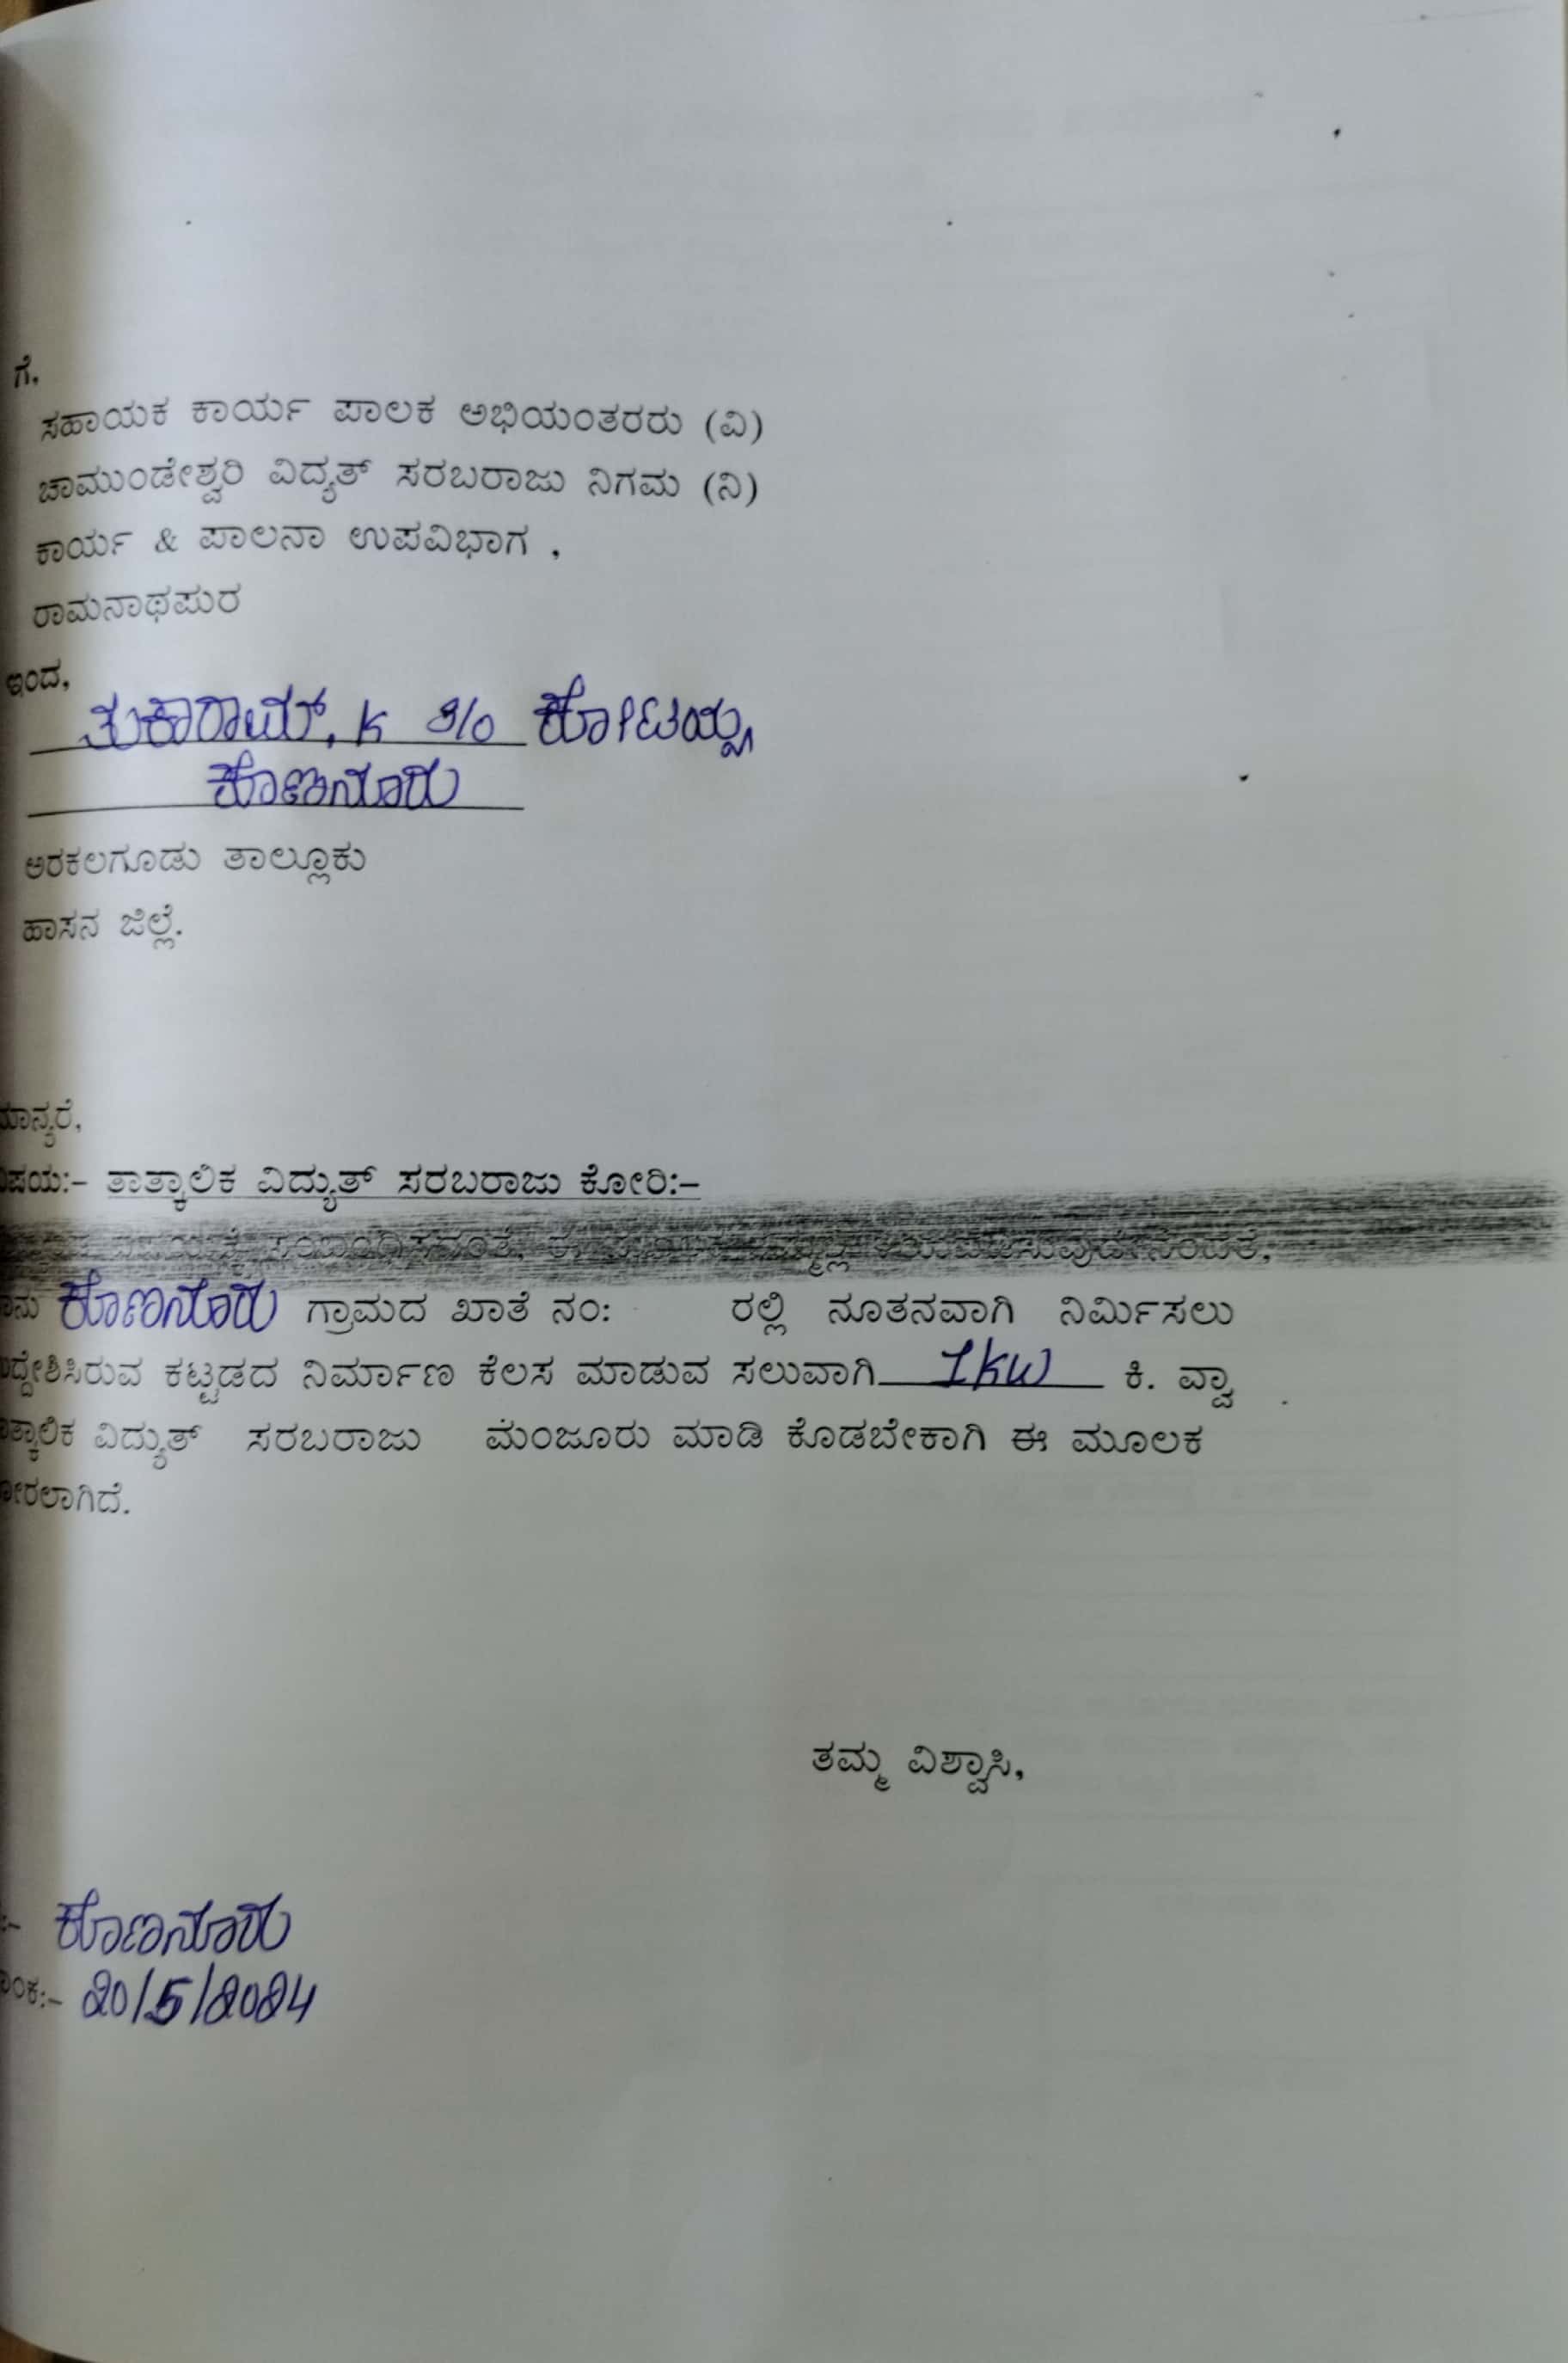 ಗೆ,
ಸಹಾಯಕ ಕಾರ್ಯ ಪಾಲಕ ಅಭಿಯಂತರರು (ವಿ)
ಚಾಮುಂಡೇಶ್ವರಿ ವಿದ್ಯತ್ ಸರಬರಾಜು ನಿಗಮ (ನಿ)
ಕಾರ್ಯ & ಪಾಲನಾ ಉಪವಿಭಾಗ ,
ರಾಮನಾಥಪುರ
ಇಂದ,
ತುಕಾರಾಮ್, K S/o ಕೋಟಯ್ಯ
ಕೊಣನೂರು
ಅರಕಲಗೂಡು ತಾಲ್ಲೂಕು
ಹಾಸನ ಜಿಲ್ಲೆ.
ಮಾನ್ಯರೆ,
ವಿಷಯ:- ತಾತ್ಕಾಲಿಕ ವಿದ್ಯುತ್ ಸರಬರಾಜು ಕೋರಿ:-
ಸಂಬಂಧಿಸಿದಂತೆ, ಈ
ಕೊಣನೂರು ಗ್ರಾಮದ ಖಾತೆ ನಂ: ರಲ್ಲಿ ನೂತನವಾಗಿ ನಿರ್ಮಿಸಲು
ದ್ದೇಶಿಸಿರುವ ಕಟ್ಟಡದ ನಿರ್ಮಾಣ ಕೆಲಸ ಮಾಡುವ ಸಲುವಾಗಿ 1KW ಕಿ. ವ್ಯಾ
ತ್ಕಾಲಿಕ ವಿದ್ಯುತ್ ಸರಬರಾಜು ಮಂಜೂರು ಮಾಡಿ ಕೊಡಬೇಕಾಗಿ ಈ ಮೂಲಕ
ೋರಲಾಗಿದೆ.
ತಮ್ಮ ವಿಶ್ವಾಸಿ,
:- ಕೊಣನೂರು
ಾಂಕ:- 20/5/2024